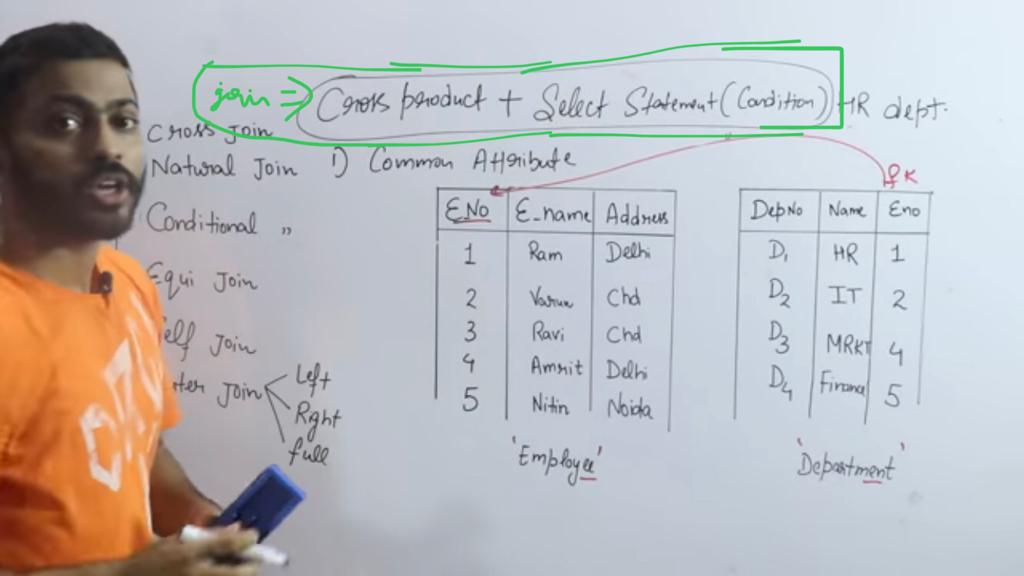 join ⇒ Cross product + Select Statement (Condition) HR dept.
Cross Join
Natural Join 1) Common Attribute
Conditional "
Equi Join
Self Join
Outer Join Left
Right
full
FK
E.No E_name Address
1 Ram Delhi
2 Varun Chd
3 Ravi Chd
4 Amrit Delhi
5 Nitin Noida
'Employee'
DepNo Name Eno
D1 HR 1
D2 IT 2
D3 MRKT 4
D4 Finana 5
'Department'